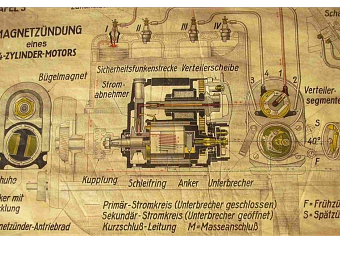 TAFEL 3
MAGNETZÜNDUNG
eines
4-ZYLINDER-MOTORS
I II III IV
Bügelmagnet
Sicherheitsfunkenstrecke Verteilerscheibe
Strom-
abnehmer
3 4 1 2
Verteiler-
segmente
S
40°
F
Kupplung Schleifring Anker Unterbrecher
Primär-Stromkreis (Unterbrecher geschlossen)
Sekundär-Stromkreis (Unterbrecher geöffnet)
Kurzschluß-Leitung M=Masseanschluß
F=Frühzü
S=Spätzü
huhe
ker mit
cklung
netzünder-Antriebrad